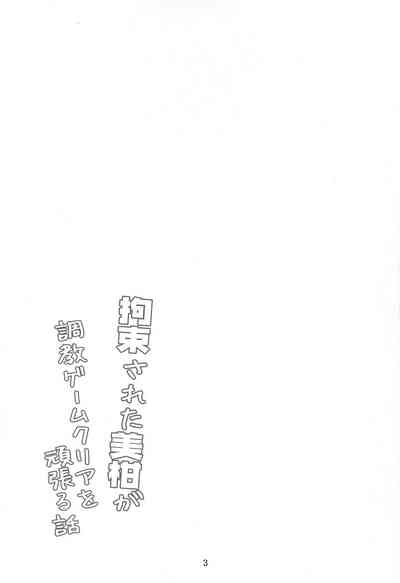 拘束された美柏が
調教ゲームクリアを
頑張る話
3